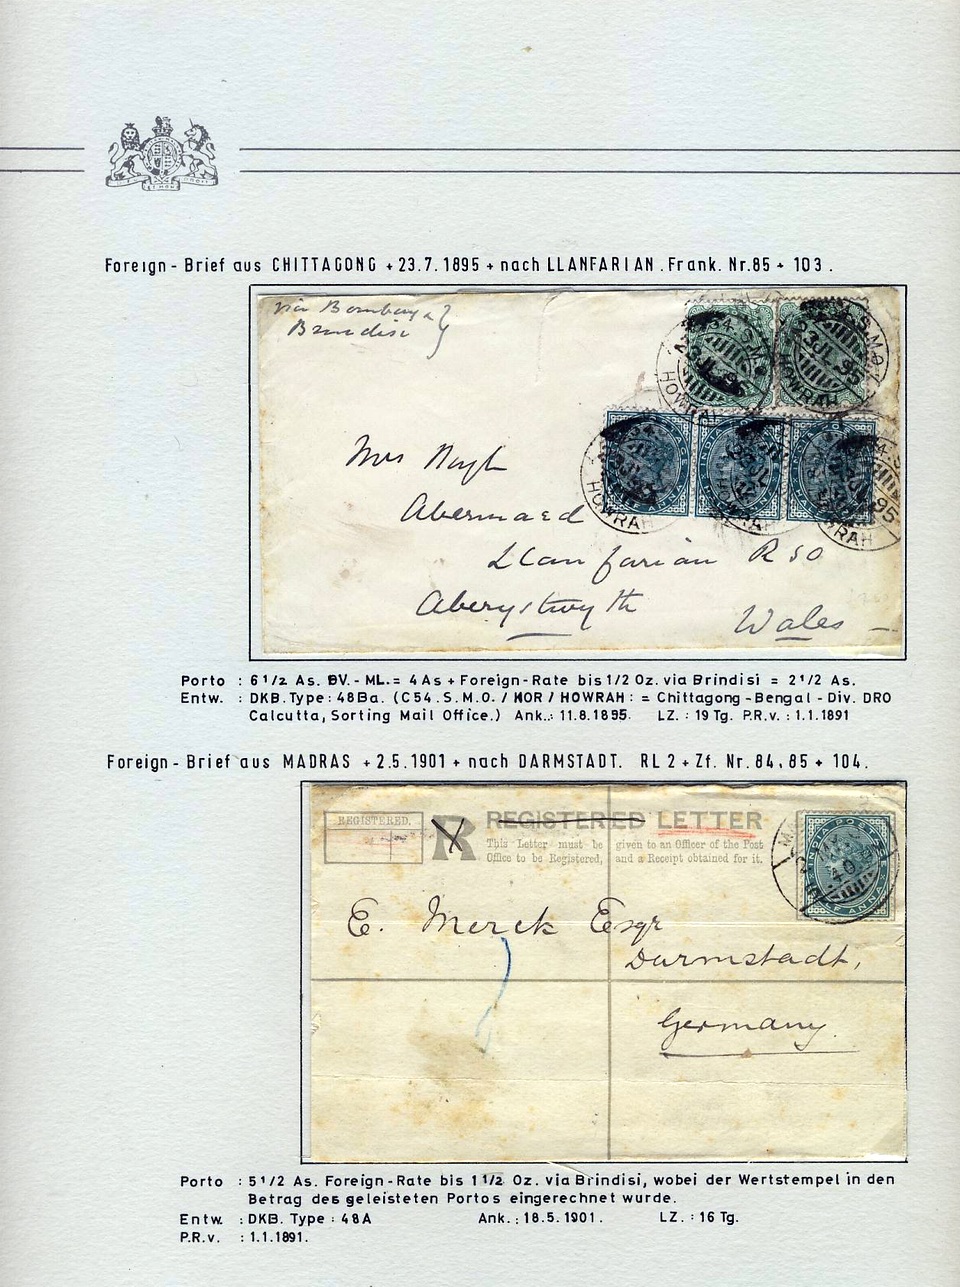 Foreign - Brief aus CHITTAGONG + 23.7.1895 + nach LLANFARIAN. Frank. Nr.85 + 103.
via Bombay &
Brindisi
34.S.M.O
23 JUL 95
HOWRAH
Mrs Hugh
Abermaed
Llanfarian R S O
Aberystwyth
Wales
Porto : 6 1/2 As. BV.- ML.= 4 As + Foreign-Rate bis 1/2 Oz. via Brindisi = 2 1/2 As.
Entw. : DKB. Type: 48Ba. (C54.S.M.O./ NOR / HOWRAH: = Chittagong-Bengal-Div. DRO
Calcutta, Sorting Mail Office.) Ank.: 11.8.1895. LZ. : 19 Tg. P.R.v. : 1.1.1891
Foreign - Brief aus MADRAS + 2.5.1901 + nach DARMSTADT. RL 2 + Zf. Nr. 84, 85 + 104.
REGISTERED.
R
REGISTERED LETTER
This Letter must be given to an Officer of the Post
Office to be Registered, and a Receipt obtained for it.
INDIA POSTAGE
HALF ANNA
E. Merck Esqr
Darmstadt,
Germany.
Porto : 5 1/2 As. Foreign-Rate bis 1 1/2 Oz. via Brindisi, wobei der Wertstempel in den
Betrag des geleisteten Portos eingerechnet wurde.
Entw. : DKB. Type : 48A Ank.: 18.5.1901. LZ. : 16 Tg.
P.R.v. : 1.1.1891.